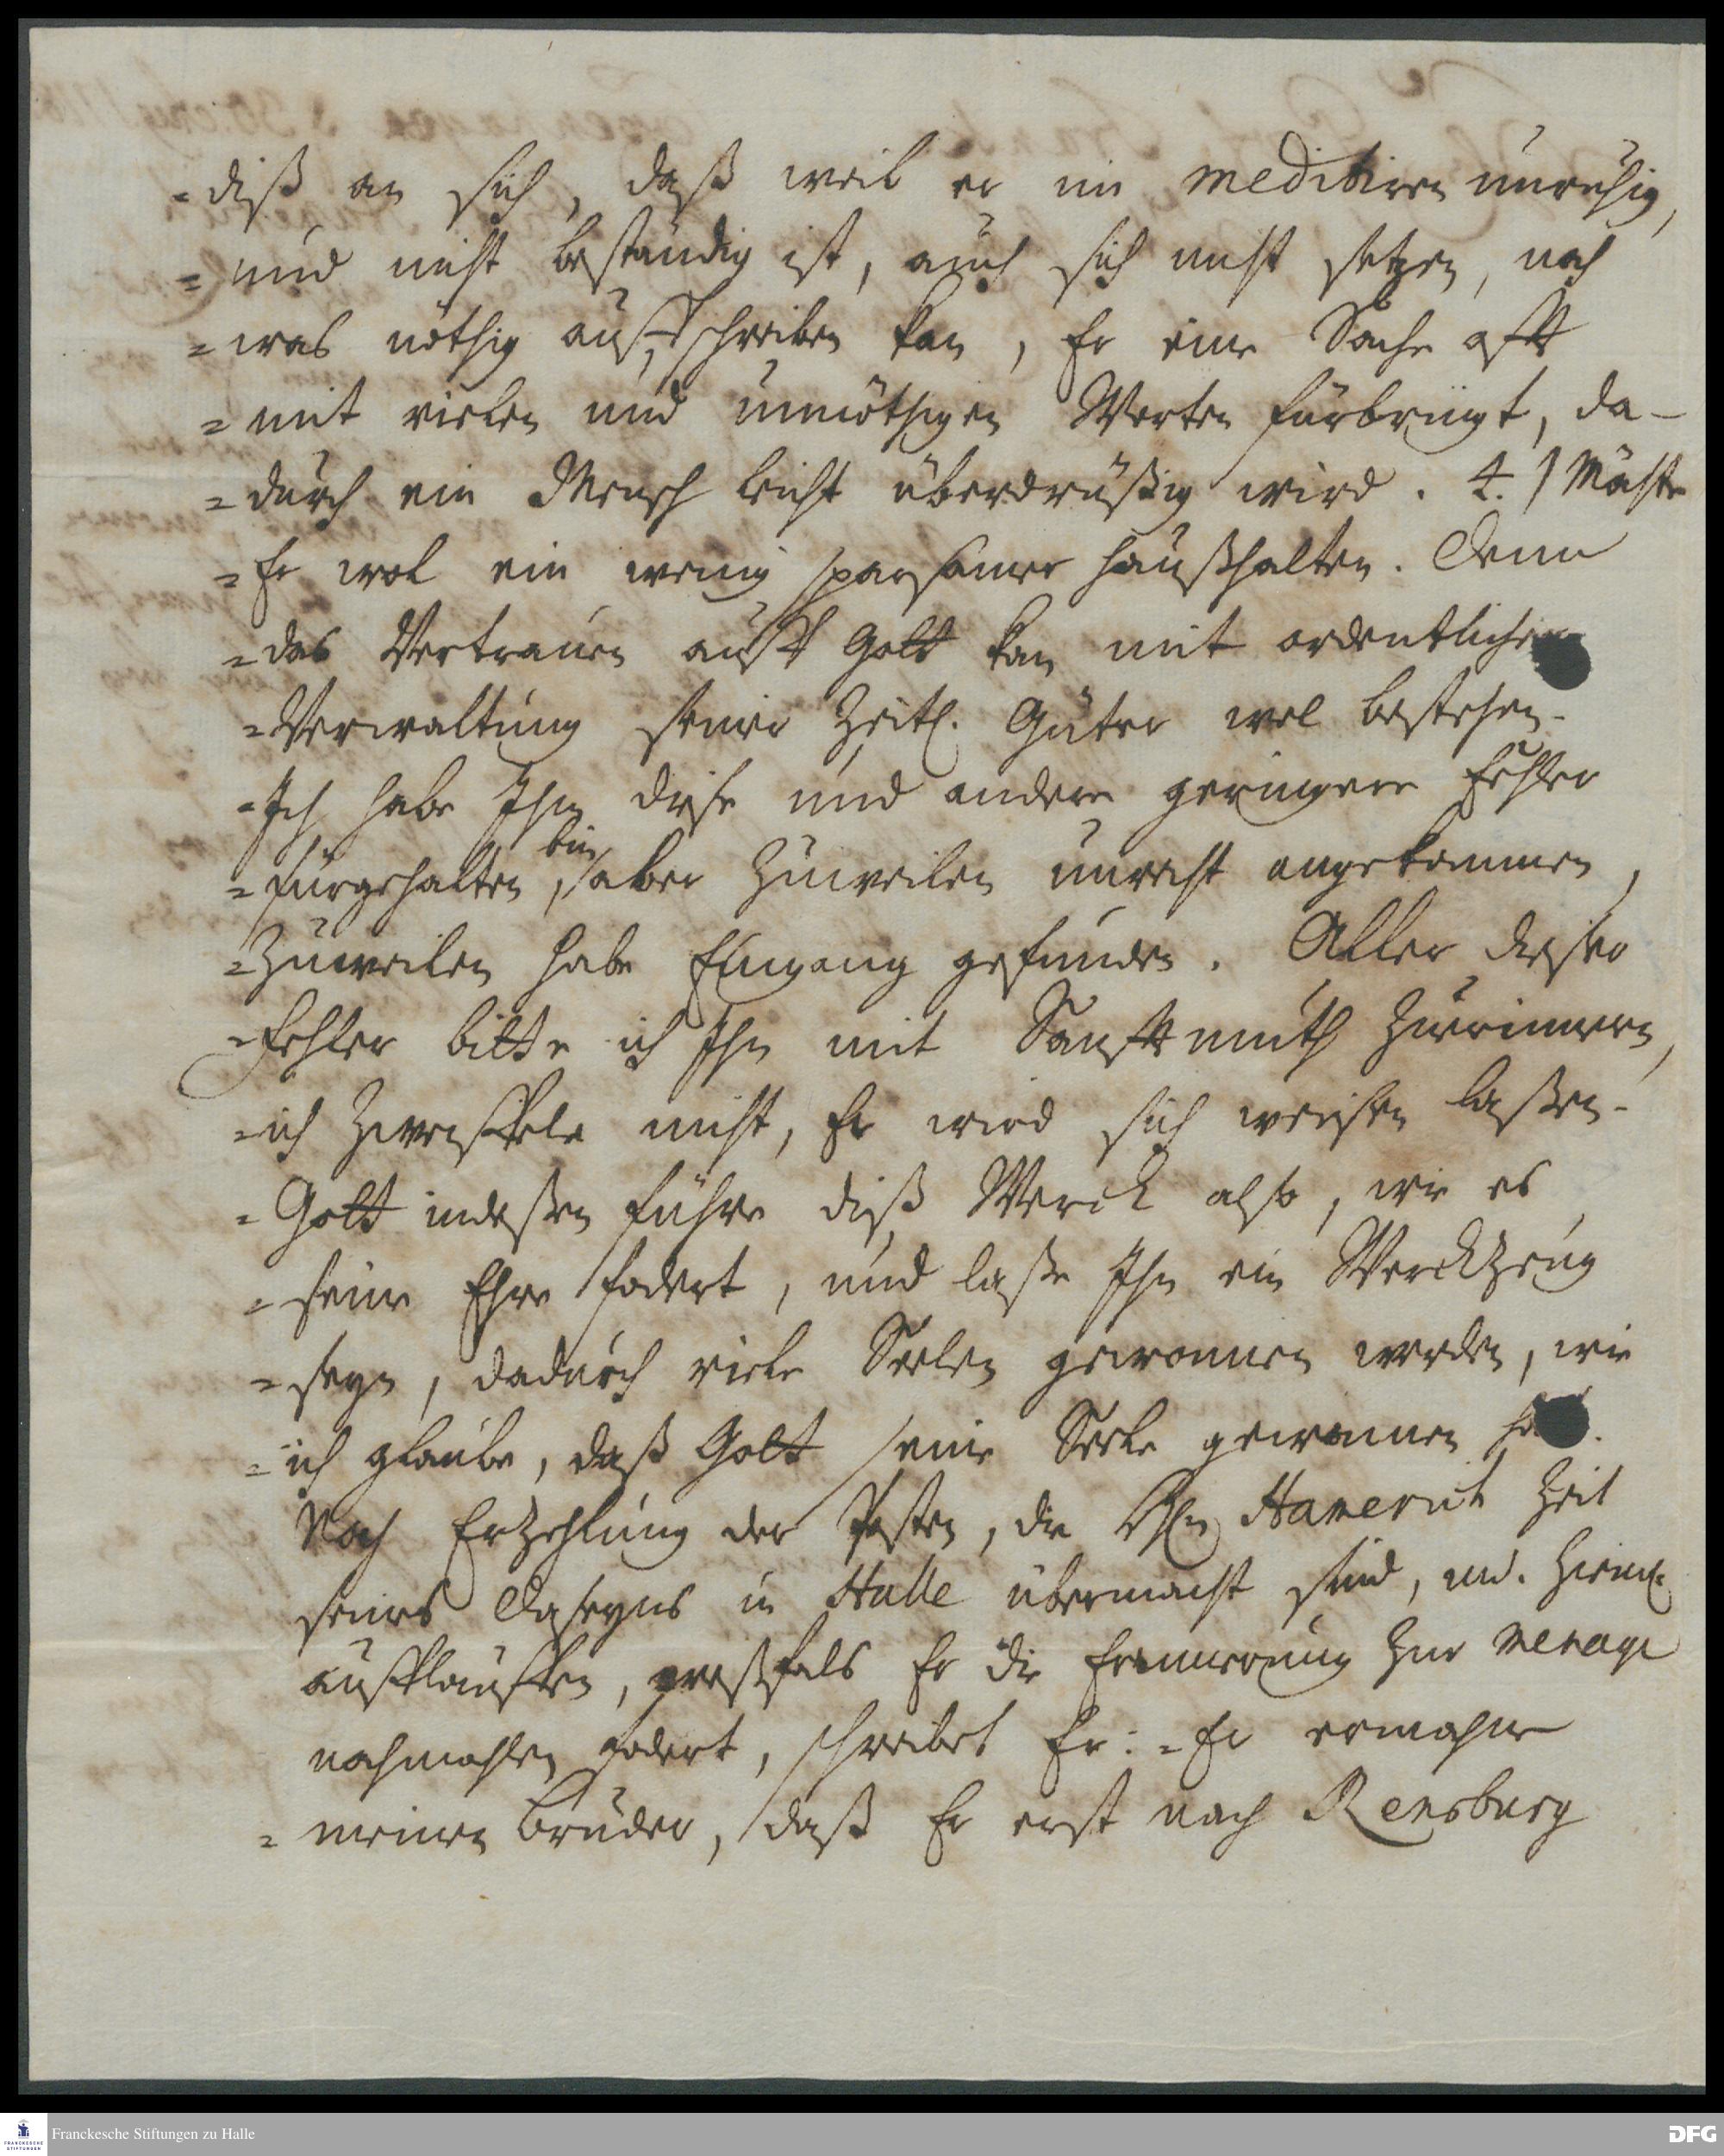 =diß an sich, daß weil er im meditiren unruhig,
=und nicht beständig ist, auch sich nicht setzen, noch
=was nöthig auffschreiben kan, Er eine Sache offt
=mit vielen und unnöthigen Worten fürbringt, da-
=durch ein Mensch leicht überdrüßig wird. 4.) Möchte
=Er wol ein wenig sparsamer haußhalten. Denn
=das Vertrauen auff Gott kan mit ordentlicher
=Verwaltung seiner Zeitl. Güter wol bestehen.
=Ich habe Ihm diese und andere geringere Fehler
=fürgehalten, bin aber zuweilen unrecht angekommen,
=Zuweilen habe Eingang gefunden. Aller dieser
=Fehler bitte ich Ihn mit Sanfftmuth zuerinnern,
=ich zweiffele nicht, Er wird sich weisen laßen.
=Gott indeßen führe diß Werck also, wie es
=seine Ehre fodert, und laße Ihn ein Werckzeug
=seyn, dadurch viele Seelen gewonnen werden, wie
=ich glaube, daß Gott seine Seele gewonnen ha.
Nach Erzehlung der Posten, die Hamerich Zeit
seines Daseyns in Halle übermacht sind, und. ziemL.
aufflauffen, weßfals Er die Erinnerung zur menage
nochmahlen fodert, schreibet Er: =Er ermahne
=meinen Bruder, daß Er erst nach Rensburg
Franckesche Stiftungen zu Halle
FRANCKESCHE
STIFTUNGEN
DFG